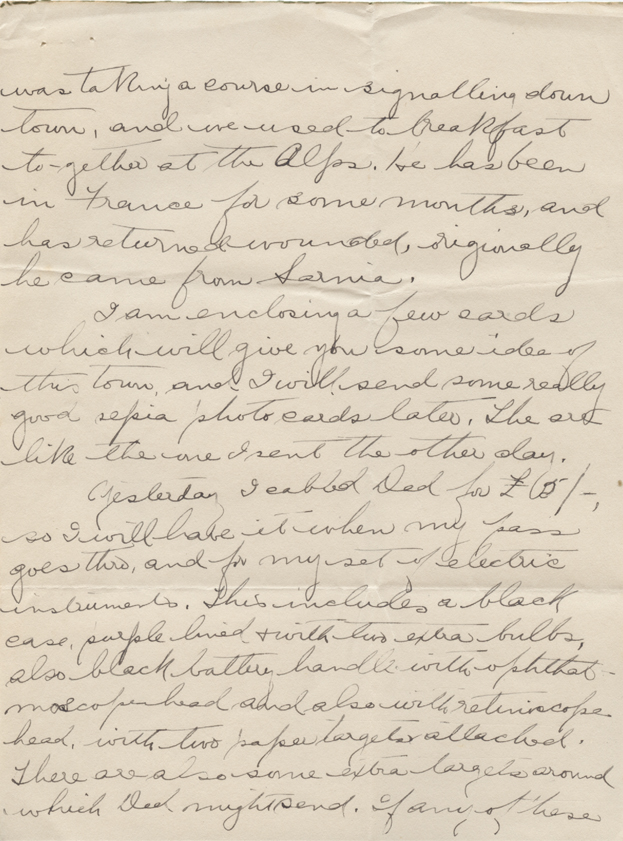 was taking a course in signalling down
town, and we used to breakfast
to-gether at the Alps. He has been
in France for some months, and
has returned wounded, origionally
he came from Sarnia.
I am enclosing a few cards
which will give you some idea of
this town, and I will send some really
good sepia photo cards later. The are
like the one I sent the other day.
Yesterday I cabled Dad for £15/-,
so I will have it when my pass
goes thro, and for my set of electric
instruments. This includes a black
case, purple lined & with two extra bulbs,
also black battery handle with ophthal-
moscope head and also with retinoscope
head, with two paper targets attached.
There are also some extra targets around
which Dad might send. If any of these